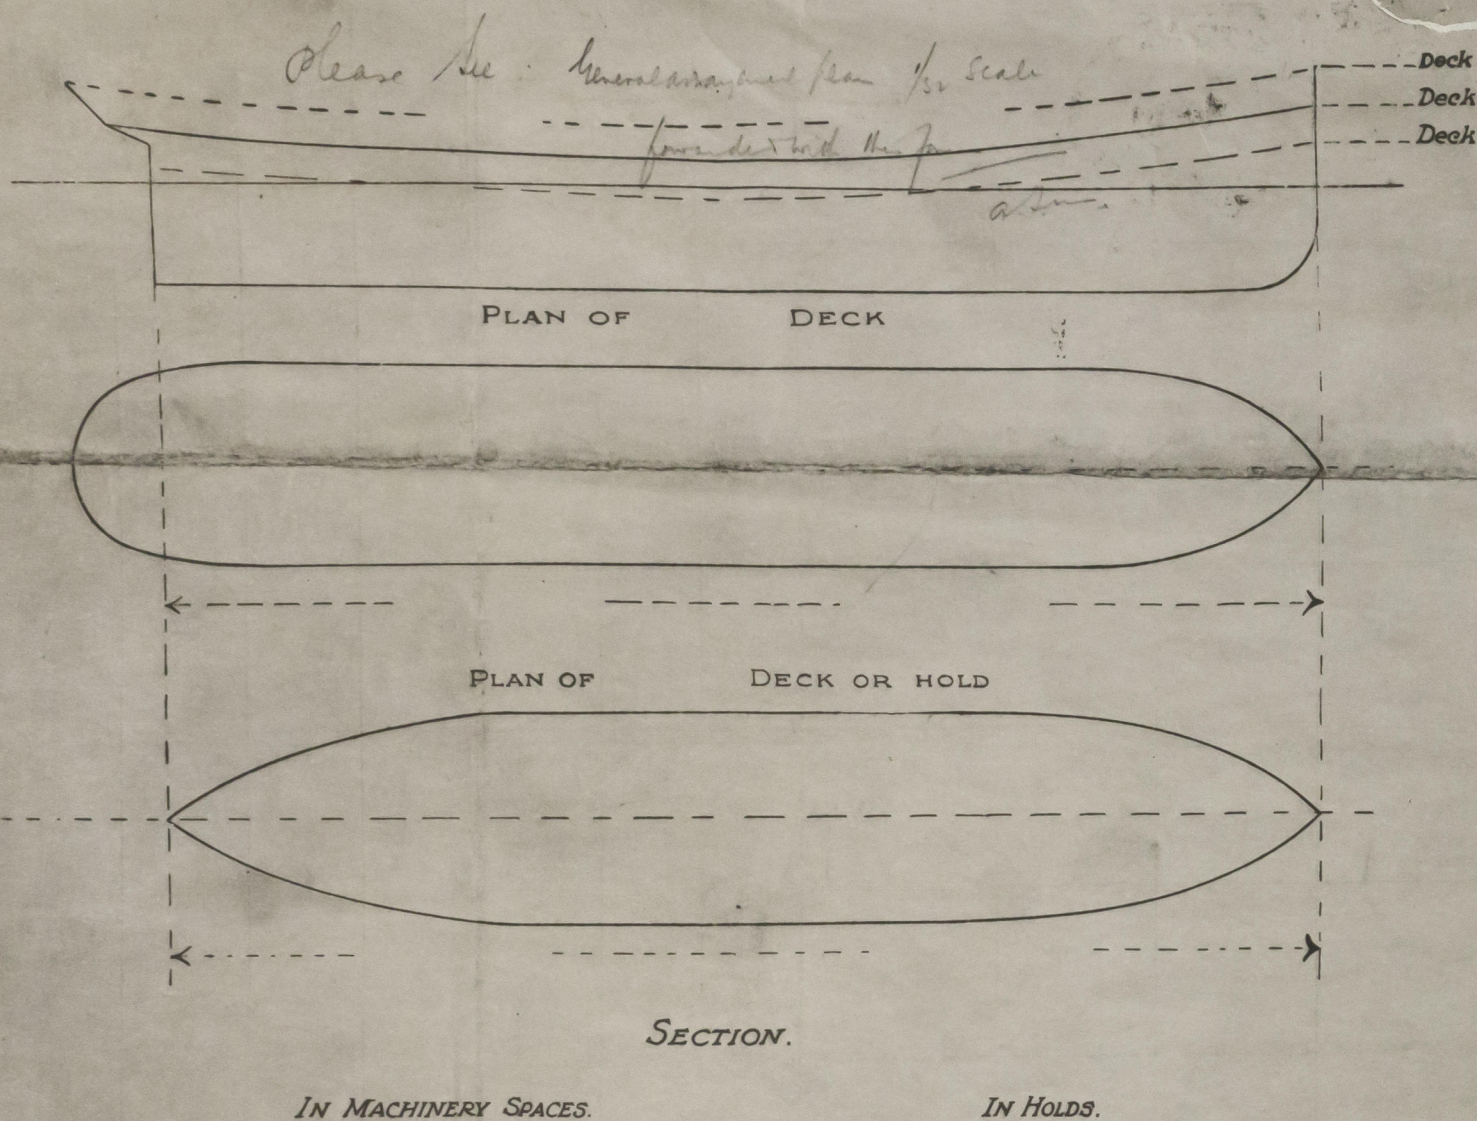 Please See : General arrangement plan 1/32 scale
Deck
Deck
forwarded with the
Deck
PLAN OF DECK
PLAN OF DECK OR HOLD
SECTION.
IN MACHINERY SPACES.
IN HOLDS.